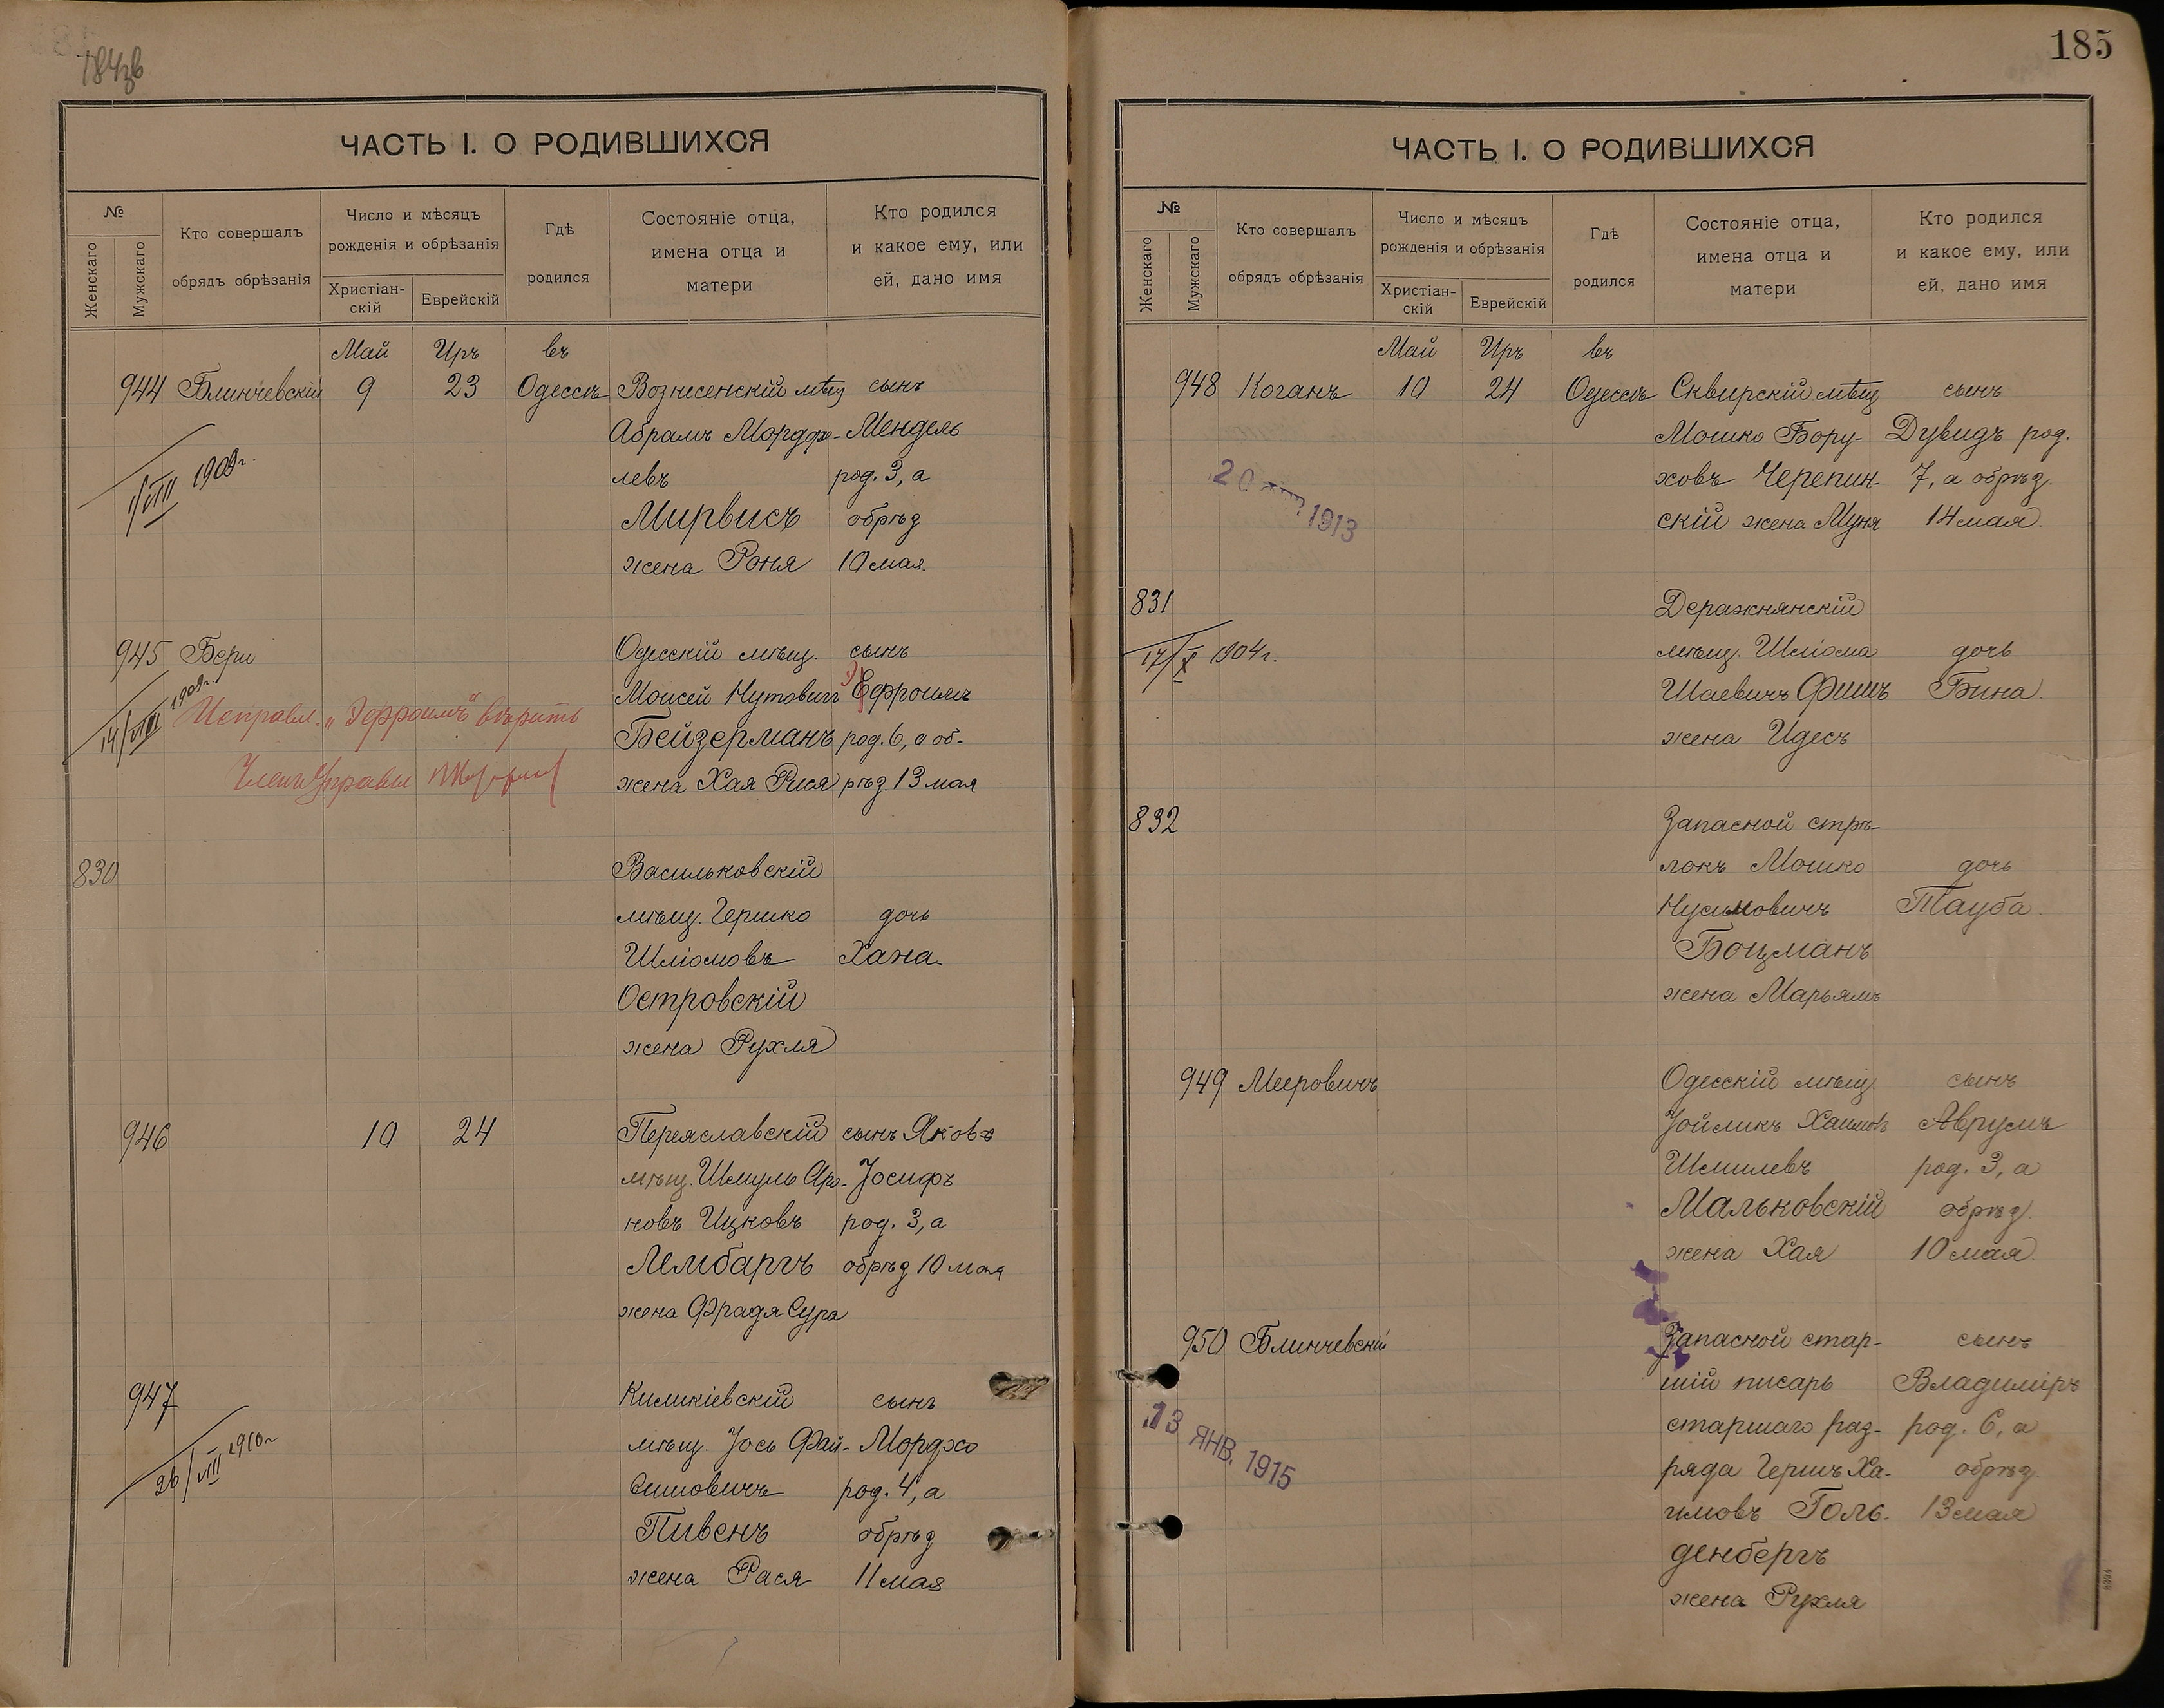 184зв
ЧАСТЬ I. О РОДИВШИХСЯ
№
Женскаго
Мужскаго
Кто совершалъ
обрядъ обрѣзанія
Число и мѣсяцъ
рожденія и обрѣзанія
Христіан-
скій
Еврейскій
Гдѣ
родился
Состояніе отца,
имена отца и
матери
Кто родился
и какое ему, или
ей, дано имя
Май Иръ въ
944 Блинчевскій 9 23 Одессѣ Вознесенскій мѣщ сынъ
Абрамъ Мордхе- Мендель
левъ род. 3, а
Мирвисъ обрѣз
жена Рэня 10 мая
1/VIII 1909г.
945 Бери Одесскій мѣщ. сынъ
Моисей Нутовичъ Ефроимъ
Бейзерманъ род. 6, а об-
жена Хая Рися рѣз. 13 мая
14/VIII 1909г.
Исправл. „Эфроимъ" вѣрить
Членъ Управы
830 Васильковскій
мѣщ. Гершко дочь
Шліомовъ Хана
Островскій
жена Рухля
946 10 24 Переяславскій сынъ Яковъ
мѣщ. Шмуль Аро- Іосифъ
новъ Ицковъ род. 3, а
Лембаргъ обрѣз 10 мая
жена Фрадя Сура
947 Киликіевскій сынъ
мѣщ. Іось Фай- Мордхо
вишовичъ род. 4, а
Пивень обрѣз
жена Рася 11 мая
26/VIII 1910г
185
ЧАСТЬ I. О РОДИВШИХСЯ
№
Женскаго
Мужскаго
Кто совершалъ
обрядъ обрѣзанія
Число и мѣсяцъ
рожденія и обрѣзанія
Христіан-
скій
Еврейскій
Гдѣ
родился
Состояніе отца,
имена отца и
матери
Кто родился
и какое ему, или
ей, дано имя
Май Иръ въ
948 Коганъ 10 24 Одессѣ Сквирскій мѣщ сынъ
Мошко Бору- Дувидъ род.
ховъ Черепин- 7, а обрѣз.
скій жена Муня 14 мая
20 1913
831 Деражнянскій
мѣщ. Шліома дочь
Шаевичъ Фишъ Бина.
жена Идесъ
17/X 1904г.
832 Запасной стрѣ-
локъ Мошко дочь
Нусимовичъ Тауба
Боцманъ
жена Марьямъ
949 Мееровичъ Одесскій мѣщ. сынъ
Іойликъ Хаимовъ Аврумъ
Шмилевъ род. 3, а
Мальковскій обрѣз.
жена Хая 10 мая
950 Блинчевскій Запасной стар- сынъ
шій писарь Владиміръ
старшаго раз- род. 6, а
ряда Гершъ Ха- обрѣз.
имовъ Голь- 13 мая
денбергъ
жена Рухля
13 ЯНВ. 1915